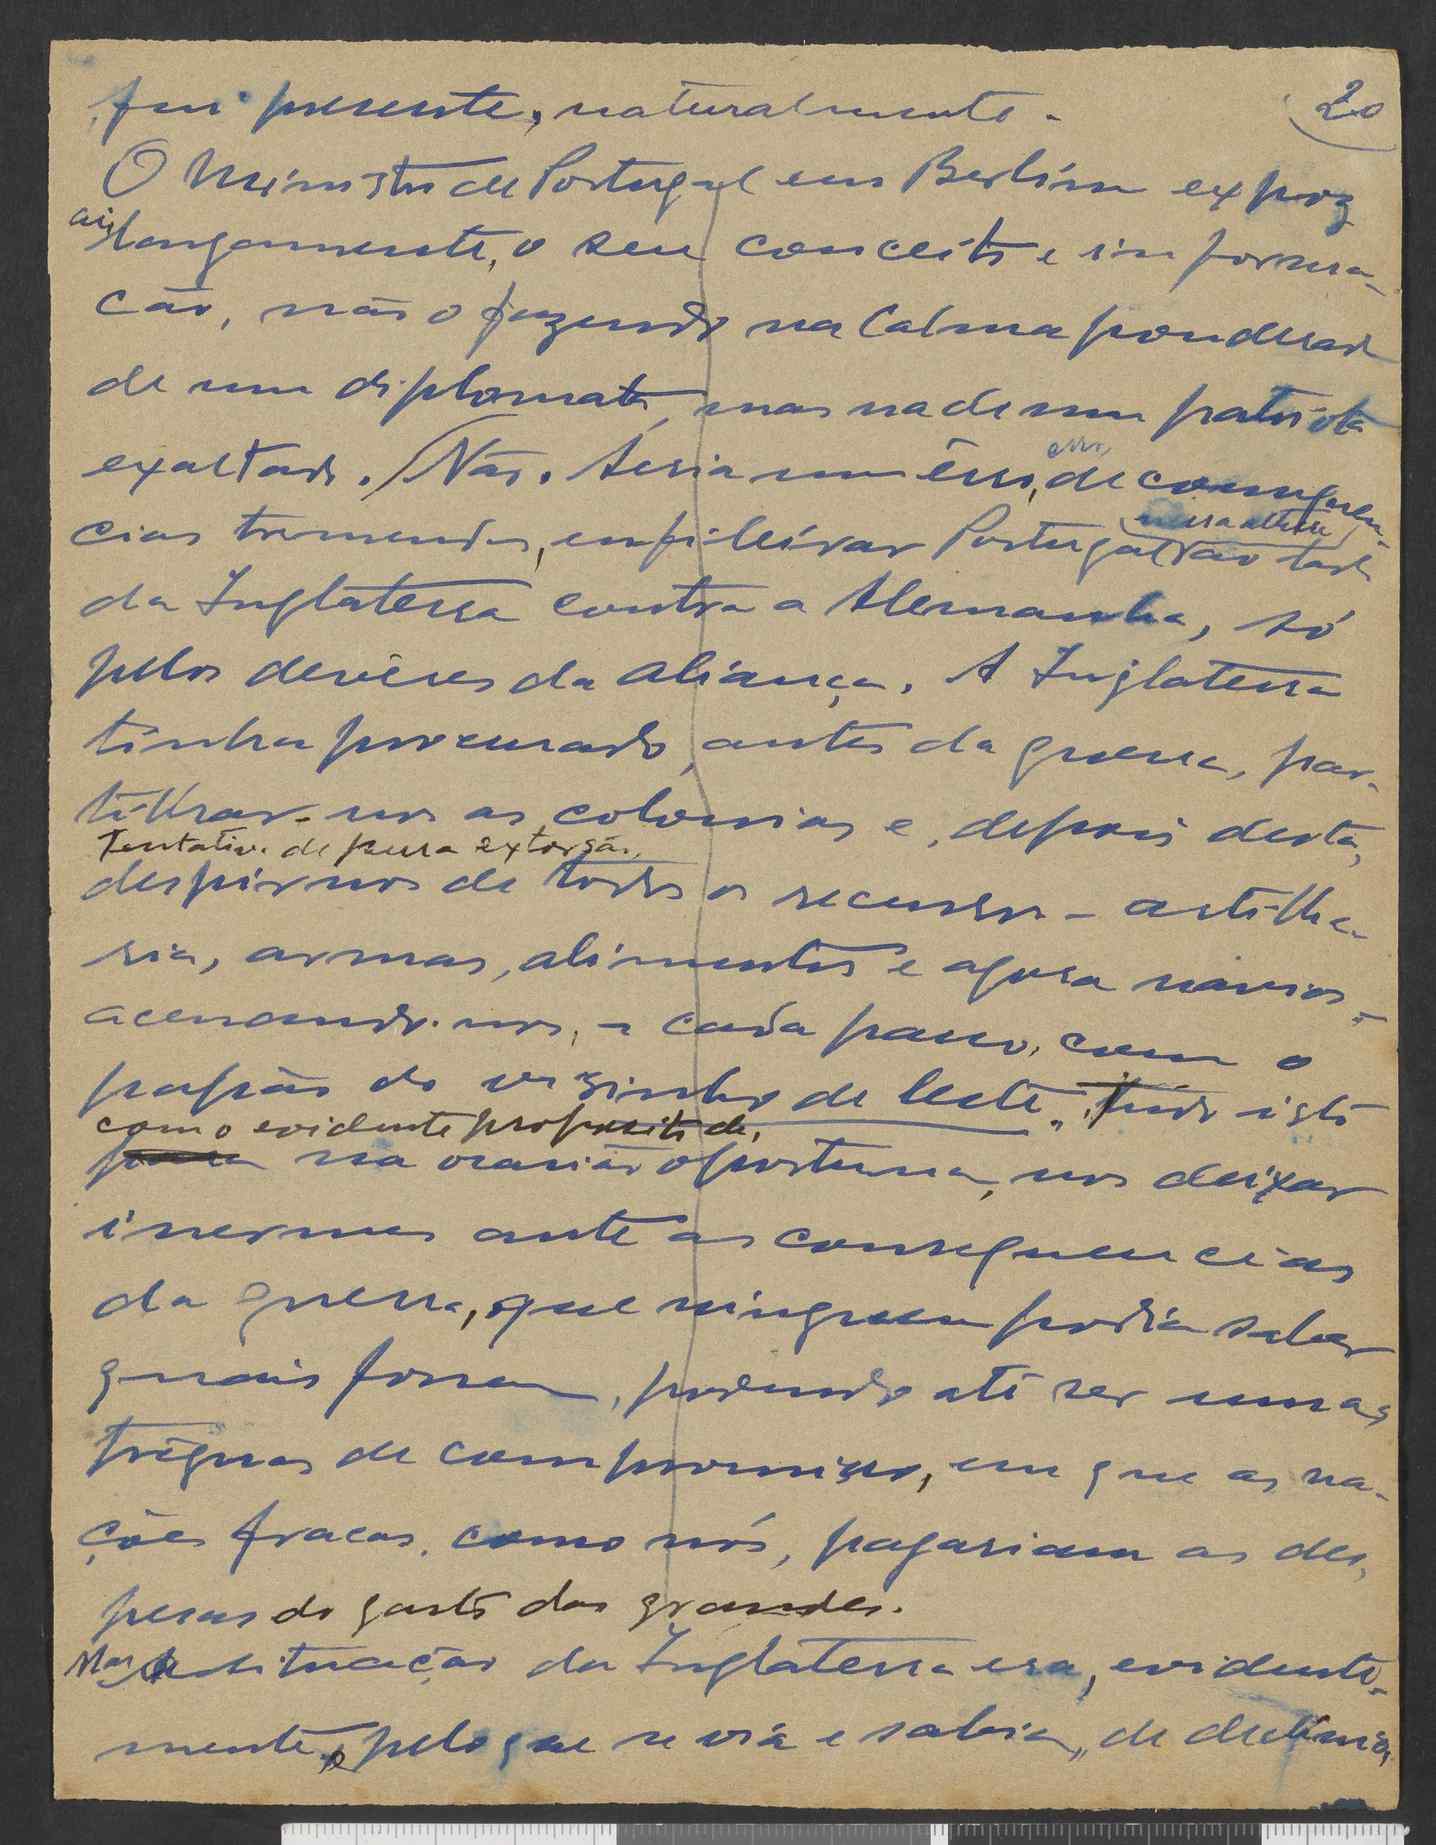 20
fui presente, naturalmente.
O Ministro de Portugal em Berlim expoz
ai, longamente, o seu conceito e informa-
ção, não o fazendo na calma ponderada
de um diplomata, mas na de um patriota
exaltado. Não. Seria um êrro, de consequen-
erro,
cias tremendas, enfileirar Portugal ao lado
nessa altura
da Inglaterra contra a Alemanha, só
pelos devêres da aliança. A Inglaterra
tinha procurado, antes da guerra, par-
tilhar-nos as colonias e, depois desta,
Tentativa de pura extorsão,
despir-nos de todos os recursos - artilha-
ria, armas, alimentos e agora navios -
acenando-nos, a cada passo, com o
papão do vizinho de leste. Tudo isto
com o evidente proposito de,
para na ocasião oportuna, nos deixar
inermes ante as consequencias
da guerra, que ninguem podia saber
quais fossem, podendo até ser umas
tréguas de compromisso, em que as na-
ções fracas, como nós, pagariam as des-
pesas do gasto das grandes.
Mas a situação da Inglaterra era, evidente-
mente, pelo que se via e sabia, de declinio,